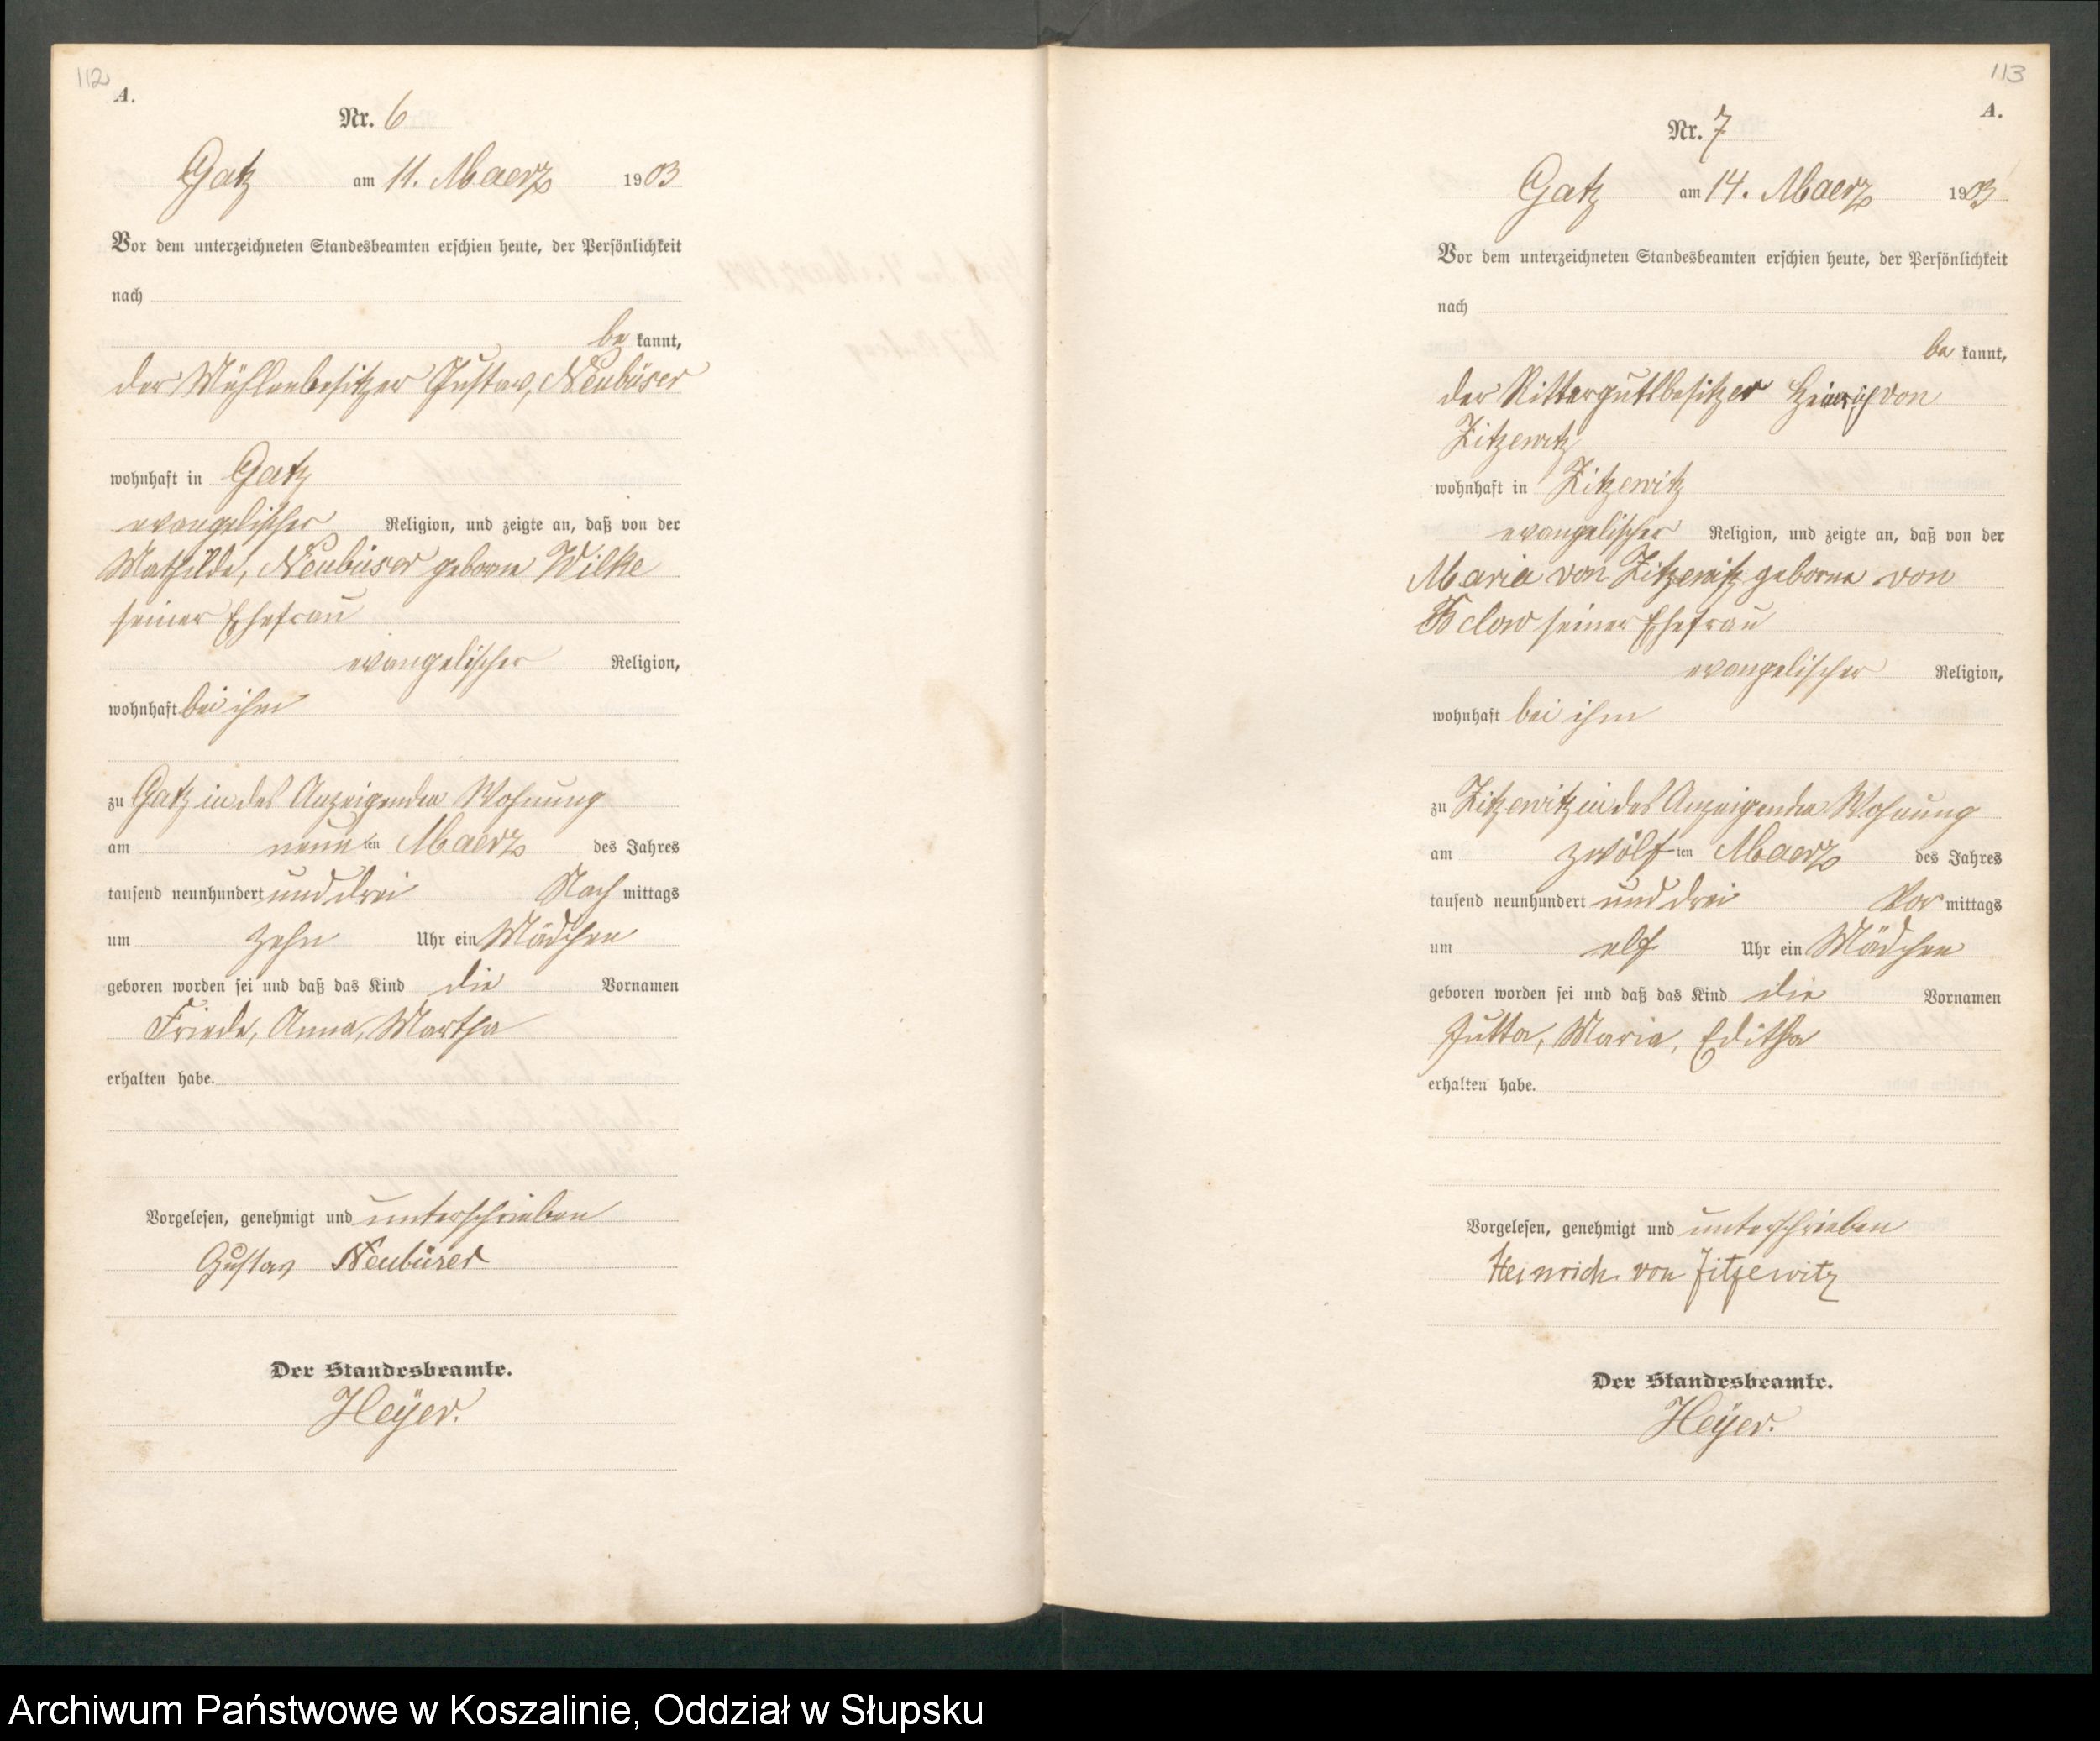 112
A.
Nr. 6
Gatz am 11. Maerz 1903
Vor dem unterzeichneten Standesbeamten erschien heute, der Persönlichkeit
nach
be kannt,
der Mühlenbesitzer Gustav, Neubüser
wohnhaft in Gatz
evangelischer Religion, und zeigte an, daß von der
Mathilde, Neubüser geborne Wilke
seiner Ehefrau
evangelischer Religion,
wohnhaft bei ihm
zu Gatz in des Anzeigenden Wohnung
am neun ten Maerz des Jahres
tausend neunhundert und drei Nach mittags
um zehn Uhr ein Mädchen
geboren worden sei und daß das Kind die Vornamen
Friede, Anna, Martha
erhalten habe.
Vorgelesen, genehmigt und unterschrieben
Gustav Neubüser
Der Standesbeamte.
Heÿer.
113
A.
Nr. 7
Gatz am 14. Maerz 1903
Vor dem unterzeichneten Standesbeamten erschien heute, der Persönlichkeit
nach
be kannt,
der Rittergutsbesitzer Heinrich von
Zitzewitz
wohnhaft in Zitzewitz
evangelischer Religion, und zeigte an, daß von der
Maria von Zitzewitz geborne von
Below seiner Ehefrau
evangelischer Religion,
wohnhaft bei ihm
zu Zitzewitz in des Anzeigenden Wohnung
am zwölf ten Maerz des Jahres
tausend neunhundert und drei Vor mittags
um elf Uhr ein Mädchen
geboren worden sei und daß das Kind die Vornamen
Jutta, Maria, Editha
erhalten habe.
Vorgelesen, genehmigt und unterschrieben
Heinrich von Zitzewitz
Der Standesbeamte.
Heÿer.
Archiwum Państwowe w Koszalinie, Oddział w Słupsku